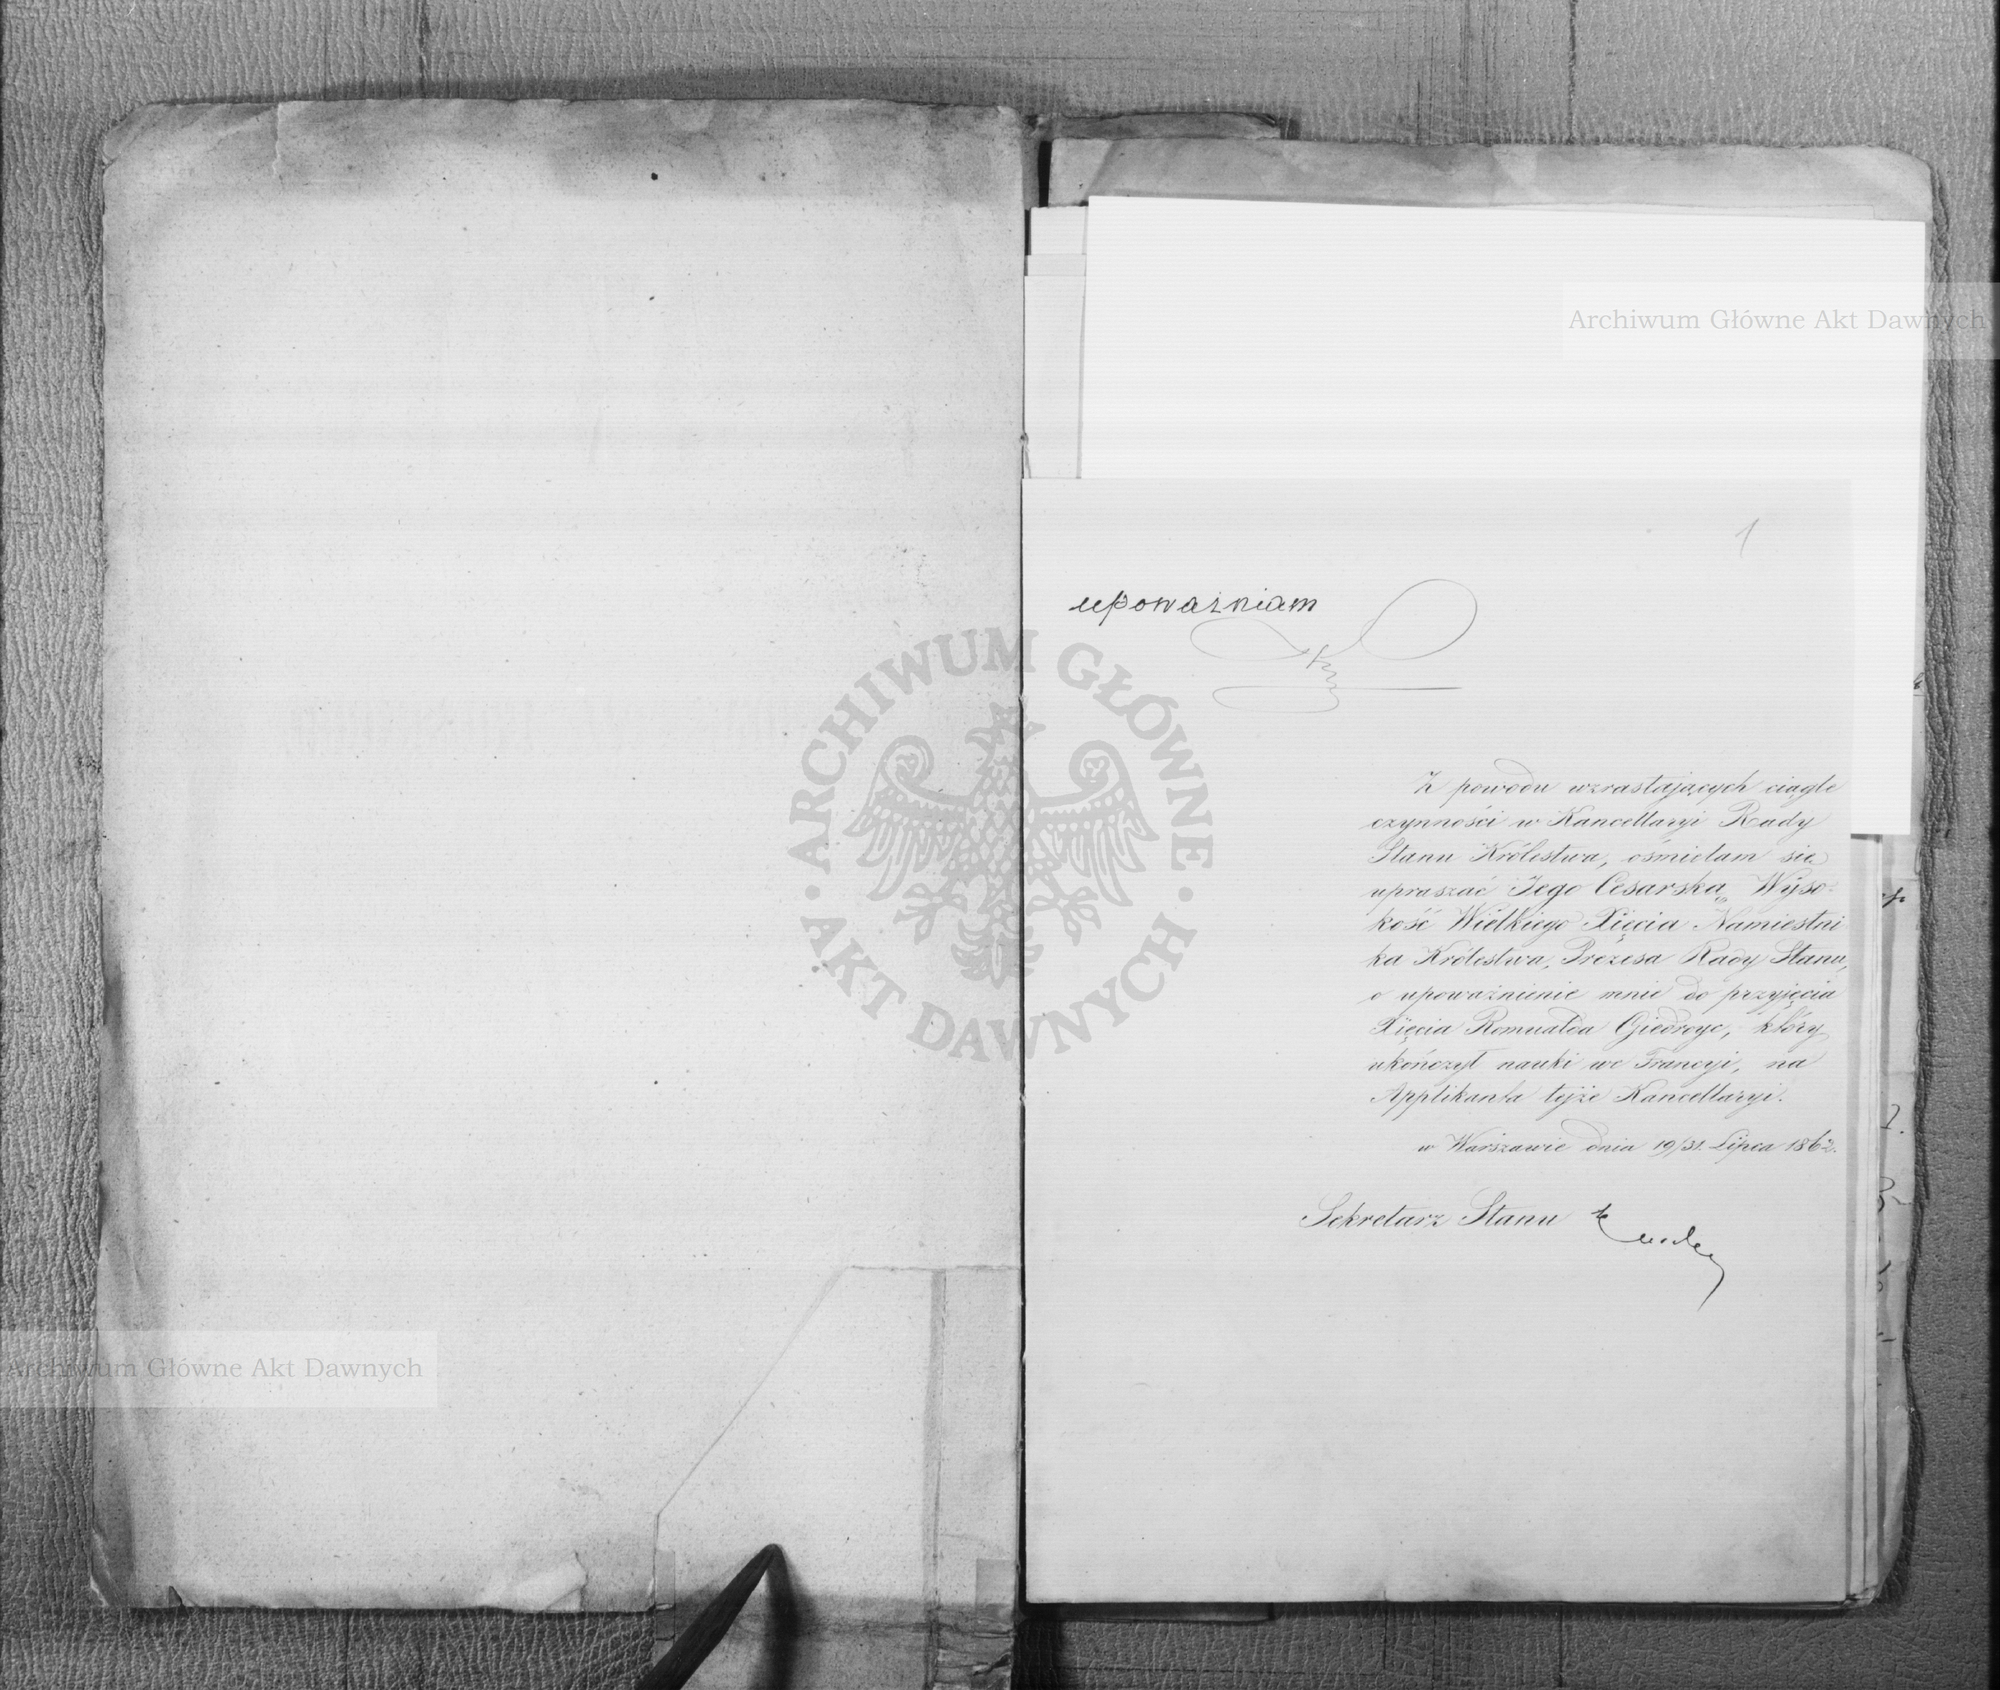 1
upoważniam
Z powodu wzrastających ciągle
czynności w Kancellaryi Rady
Stanu Królestwa, ośmielam się
upraszać Jego Cesarską Wyso-
kość Wielkiego Xięcia Namiestni
ka Królestwa, Prezesa Rady Stanu,
o upoważnienie mnie do przyjęcia
Xięcia Romualda Giedroyc, który
ukończył nauki we Francyi, na
Applikanta tejże Kancellaryi.
w Warszawie dnia 19/31 Lipca 1862.
Sekretarz Stanu
Archiwum Główne Akt Dawnych
ARCHIWUM GŁÓWNE AKT DAWNYCH
Archiwum Główne Akt Dawnych